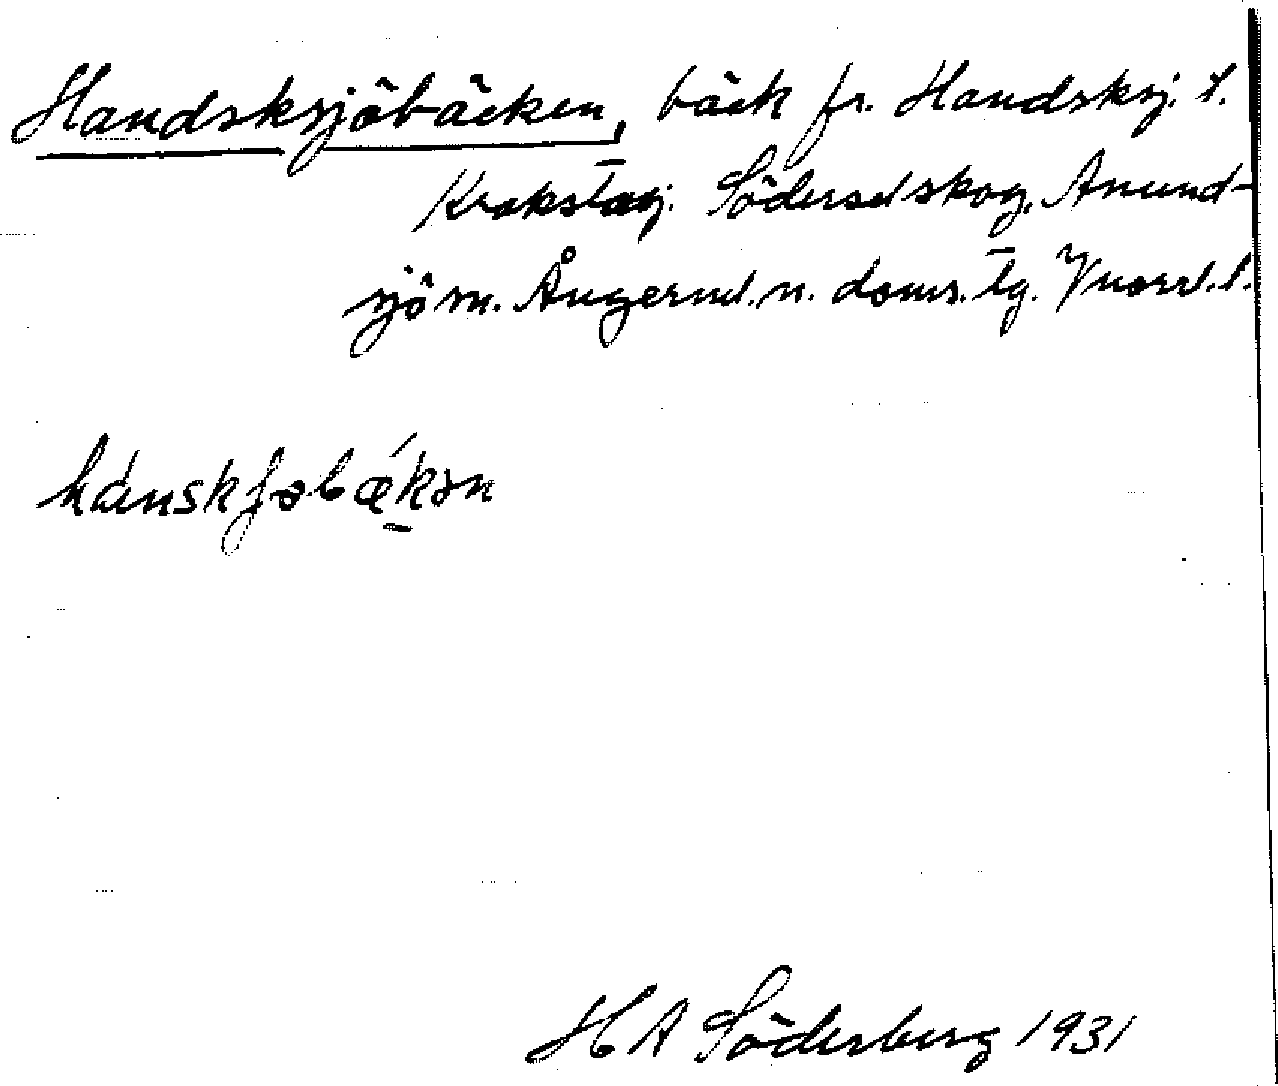 Handsksjöbäcken, bäck fr. Handsksj. t.
Krokstaj. Söderselskog, Anund-
sjö sn. Ångerml. n. doms. tg. Vnorrl. l.
hánskʃəbǽkən
H A Söderberg 1931